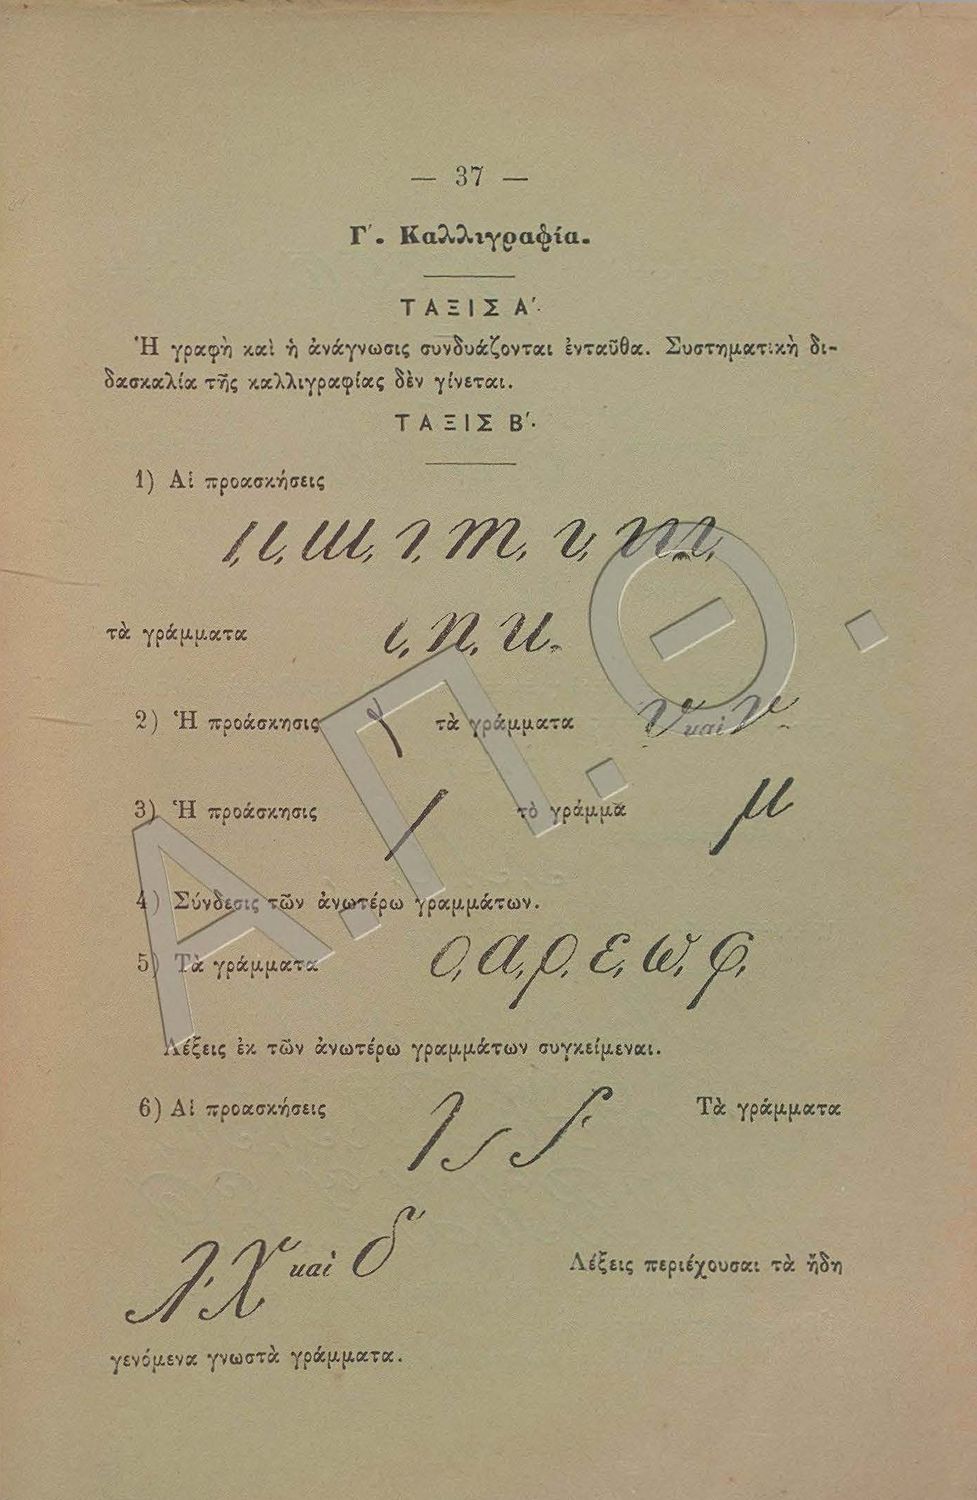 — 37 —
Γ'. Καλλιγραφία.
ΤΑΞΙΣ Α'.
Ἡ γραφὴ καὶ ἡ ἀνάγνωσις συνδυάζονται ἐνταῦθα. Συστηματικὴ δι-
δασκαλία τῆς καλλιγραφίας δὲν γίνεται.
ΤΑΞΙΣ Β'.
1) Αἱ προασκήσεις
τὰ γράμματα ι, π, κ.
2) Ἡ προάσκησις τὰ γράμματα υ καὶ ν.
3) Ἡ προάσκησις τὸ γράμμα μ
4) Σύνδεσις τῶν ἀνωτέρω γραμμάτων.
5) Τὰ γράμματα ο, α, ρ, ε, ω, φ,
Λέξεις ἐκ τῶν ἀνωτέρω γραμμάτων συγκείμεναι.
6) Αἱ προασκήσεις Τὰ γράμματα
λ, χ καὶ δ Λέξεις περιέχουσαι τὰ ἤδη
γενόμενα γνωστὰ γράμματα.
Α.Π.Θ.